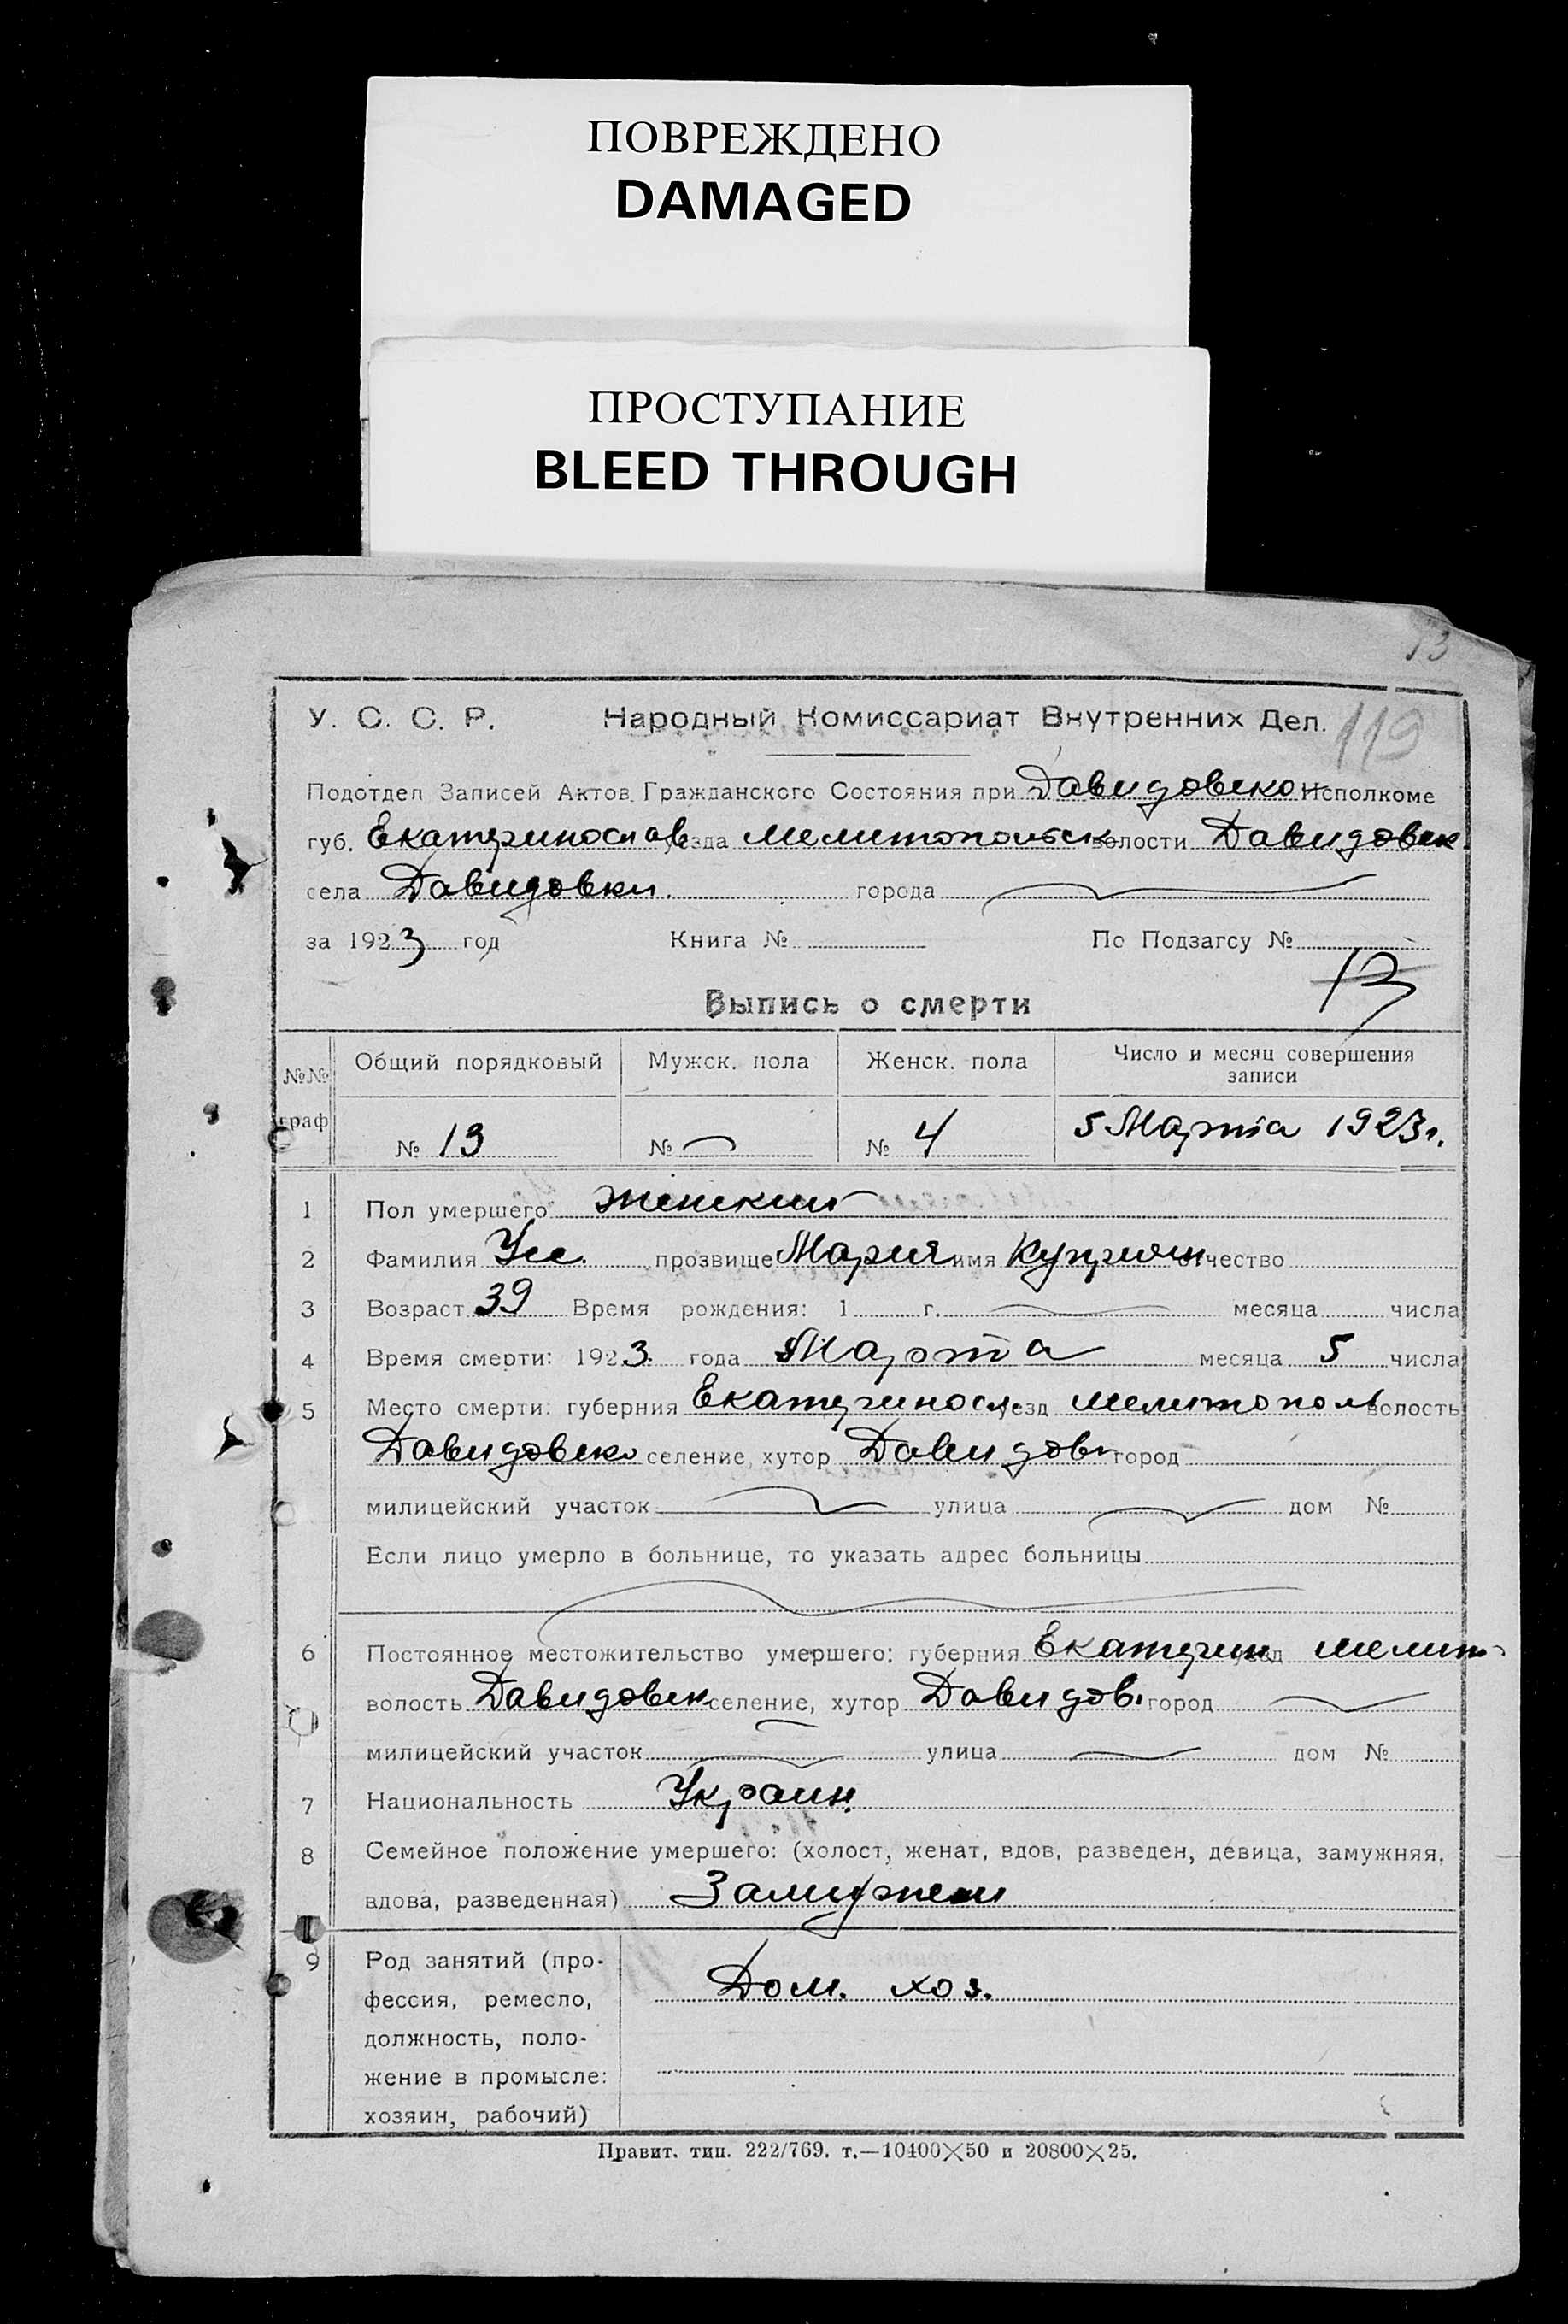 ПОВРЕЖДЕНО
DAMAGED
ПРОСТУПАНИЕ
BLEED THROUGH
13
У. С. С. Р. Народный Комиссариат Внутренних Дел. 119
Подотдел Записей Актов Гражданского Состояния при Давидовско Исполкоме
губ. Екатеринослав уезда Мелитопольск волости Давидовск
села Давидовки. города
за 1923 год Книга № По Подзагсу №
13
Выпись о смерти
№№ граф Общий порядковый Мужск. пола Женск. пола Число и месяц совершения записи
№ 13 № № 4 5 Марта 1923 г.
1 Пол умершего Женский
2 Фамилия Ус. прозвище Мария имя Куприян отчество
3 Возраст 39 Время рождения: 1 г. месяца числа
4 Время смерти: 1923 года Марта месяца 5 числа
5 Место смерти: губерния Екатериносл. уезд Мелитополь волость
Давидовско селение, хутор Давидов город
милицейский участок улица дом №
Если лицо умерло в больнице, то указать адрес больницы
6 Постоянное местожительство умершего: губерния Екатерин уезд Мелит
волость Давидовск селение, хутор Давидов. город
милицейский участок улица дом №
7 Национальность Украин.
8 Семейное положение умершего: (холост, женат, вдов, разведен, девица, замужняя,
вдова, разведенная) Замужем
9 Род занятий (про-
фессия, ремесло, Дом. хоз.
должность, поло-
жение в промысле:
хозяин, рабочий)
Правит. тип. 222/769. т.—10400×50 и 20800×25.